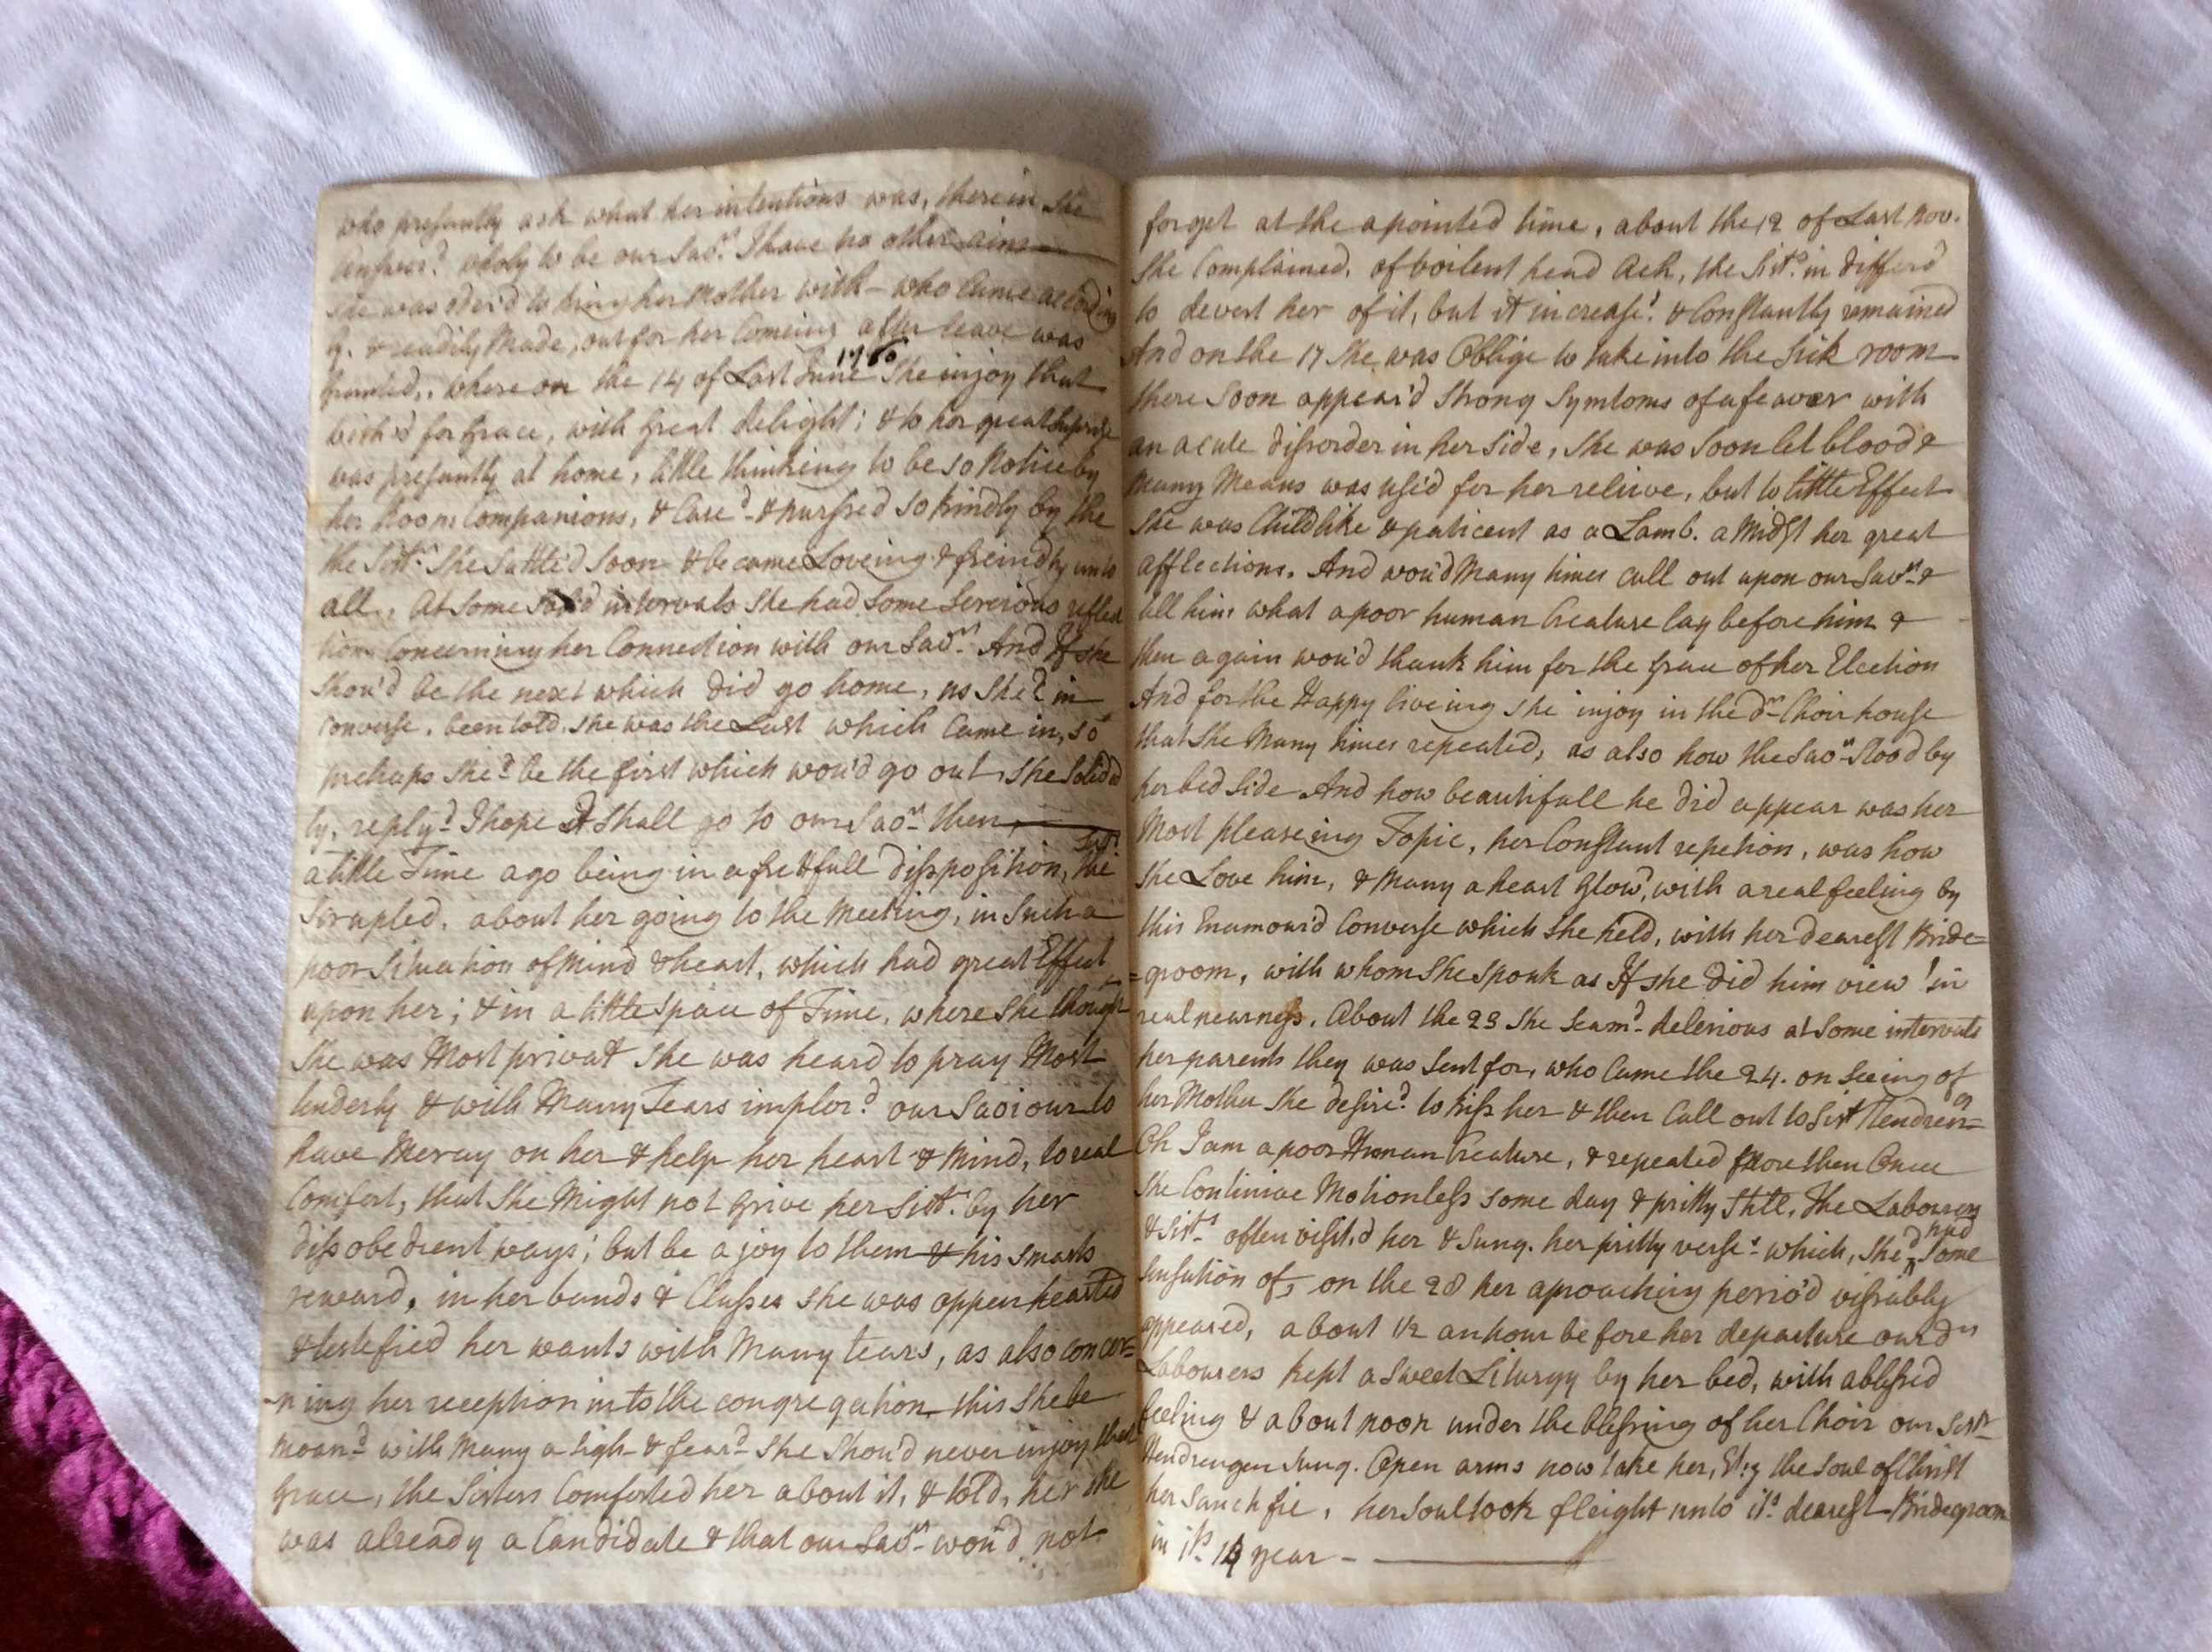 who presantly ask what her intentions was, therein she
Answer.d wholy to be our Savr. I have no other aim
she was oder'd to bring her Mother with - who Came acording
ly. & readily Made, out for her Comeing after leave was
1760
granted,. where on the 14 of Last June She injoy that
wish'd for Grace, with Great delight; & to her great Suprise
was presantly at home, little thinking to be so Notice by
her Room Companions, & Care.d & nursred so kindly by the
the Sistrs She Sattle'd Soon & became Loveing & freindly unto
all. At Some intervals She had Some Sereious reflec
tions Concerning her Connection with our Savr. And If she
Shou'd be the next which did go home, as She'd in
Converse. been told. she was the Last which Came in, so
prehaps She.d be the first which wou'd go out, She Solided
ly. reply.d I hope I Shall go to our Savr. then,
Sistrs
a little Time ago being in a fretfull dissposition, the
Scrupled. about her going to the Meeting, in Such a
poor Situation of Mind & heart, which had great Effect
upon her; & in a little space of Time, where She thought
She was Most privat She was heard to pray Most
tenderly & with Many Tears implor.d our Saviour to
have Mercuy on her & help her heart & Mind, to real
Comfort, that She Might not Grive her Sistrs by her
dissobedient ways; but be a joy to them & his smarts
reward, in her bands & Classes she was oppen hearted
& testefied her wants with Many tears, as also concer=
-ning her reception into the congregation this She be
moan.d with Many a sigh & fear.d She Shou'd never injoy that
Grace, the Sisters Comforted her about it, & told, her she
was already a Candidate & that our Savr. wou'd not
forget at the apointed time, about the 12 of Last Nov.
She Complained, of voilent head Ach, the Sistrs indifferd
to devert her of it, but it increase.d & Constantly remained
And on the 17 She was Oblige to take into the Sick room
there Soon appear'd Strong Symtoms of a feaver with
an acute dissorder in her Side, She was Soon let blood &
Many Means was use'd for her relieve, but to little Effect
She was Childlike & paticent as a Lamb. a Midst her great
afflections. And wou'd Many times Call out upon our Savr. &
tell him what a poor human Creature lay before him &
then again wou'd thank him for the Grace of her Election
And for the Happy liveing she injoy in the dr. Choir house
that She Many times repeated, as also how the Savr. Stood by
her bed Side And how beautifull he did appear was her
Most pleaseing Topic, her Constant repetion, was how
She Love him, & Many a heart Glow'd, with a real feeling by
this Enamour'd Converse which She held, with her dearest Bride=
=groom, with whom She Spoak as If she did him view! in
real nearness. About the 23 She Seam.d delerious at Some intervals
her parents they was Sent for, who Came the 24. on Seeing of
her Mother She desire.d to kiss her & then Call out to Sistr
Oh I am a poor Human Creature, & repeated More then Once
She Continiue Motionless some day & pritty Still, The Labourers
& Sistrs often visit.d her & Sung. her pritty verses which, She'd had Some
Sensation of, on the 28 her aproaching perio'd vissably
appeared, about 1/2 an hour before her departure our dr
Labourers kept a Sweet Liturgy by her bed, with a blessed
feeling & about noon under the blessing of her Choir our Sistr
Sung. Open arms now take her, the Soul of Christ
her Sanctfie, her Soul took fleight unto its dearest Bridegroom
in its year -